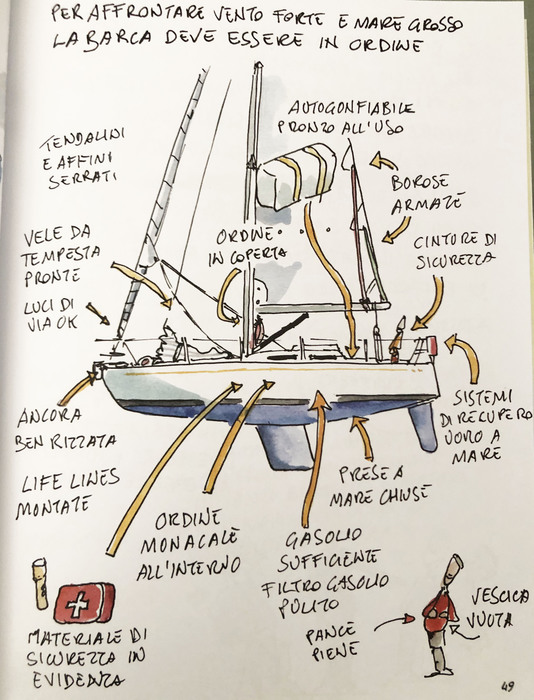 PER AFFRONTARE VENTO FORTE E MARE GROSSO
LA BARCA DEVE ESSERE IN ORDINE
AUTOGONFIABILE
PRONTO ALL'USO
TENDALINI
E AFFINI
SERRATI
BOROSE
ARMATE
VELE DA
TEMPESTA
PRONTE
ORDINE
IN COPERTA
CINTURE DI
SICUREZZA
LUCI DI
VIA OK
ANCORA
BEN RIZZATA
SISTEMI
DI RECUPERO
UOMO A
MARE
LIFE LINES
MONTATE
PRESE A
MARE CHIUSE
ORDINE
MONACALE
ALL'INTERNO
GASOLIO
SUFFICIENTE
FILTRO GASOLIO
PULITO
MATERIALE DI
SICUREZZA IN
EVIDENZA
PANCE
PIENE
VESCICA
VUOTA
49